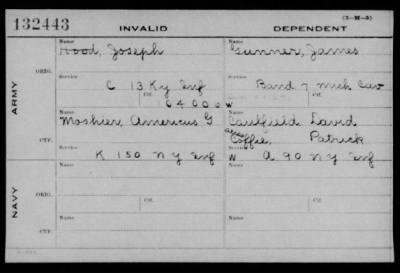 132443
INVALID
DEPENDENT
(3-M-5)
ARMY
NAVY
Name
Hood, Joseph
Name
Gunner, James
ORIG.
Service
Service
C 13 Ky Inf
Band 7 Mich Cav
Ctf.
Ctf.
640006
W
Name
Moshier, Americus G
Name
Caulfield David
alias
Coffie, Patrick
CTF.
Service
K 150 N Y Inf
Service
W A 90 N Y Inf
Name
Name
ORIG.
Ctf.
Ctf.
Name
Name
CTF.